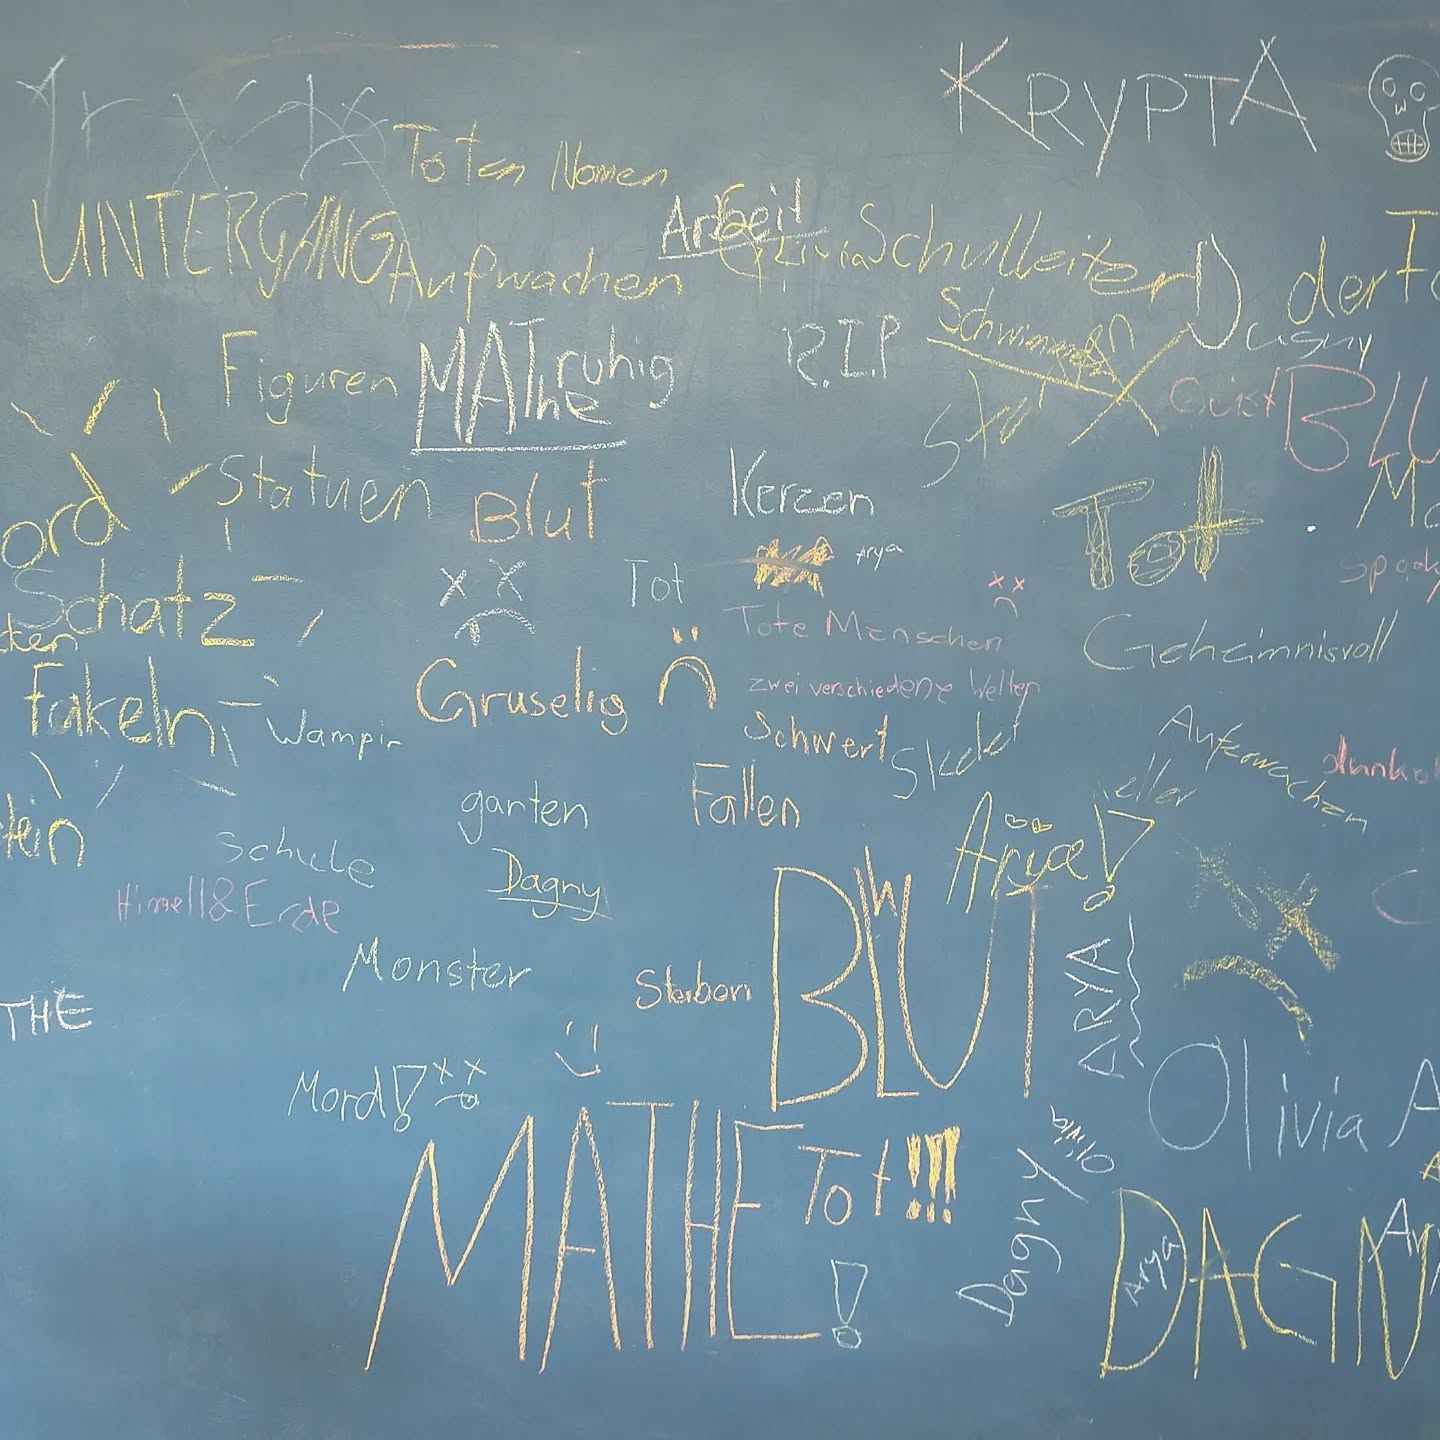 KRYPTA
Toten Namen
UNTERGANG
Arbeit
Schulleiter
Aufwachen
der
Schwimmen
Dagny
R.I.P
MAThe
ruhig
Figuren
BLU
Statuen
Blut
Kerzen
Tot
ord
Schatz
Tot
Arya
spook
Tote Menschen
Geheimnisvoll
cken
Fakeln
Gruselig
zwei verschiedene Welten
Wampir
Schwert
Skelet
Auferwachen
dunkel
garten
Fallen
eller
tein
Schule
Arya!
Himell & Erde
Dagny
BLUT
Monster
Sterben
ARYA
THE
Mord!
Olivia
A
MATHE
Tot!!!
Olivia
Dagny
!
DAGN
Arya
Ary